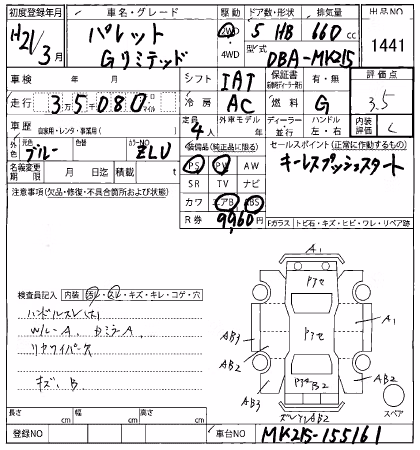 初度登録年月 車名・グレード 駆動 ドア数・形状 排気量 出品NO
H21年3月 パレット Gリミテッド 2WD 4WD 5 HB 660cc 1441
型式 DBA-MK21S
車検 年 月 シフト IAT 保証書 有・無 評価点
走行 35千080 マイル 冷房 AC 燃料 G 3.5
車歴 自家用・レンタ・事業用( ) 定員 4人 外車モデル 年 ディーラー・並行 ハンドル 左・右 内装評価 C
元色 ブルー 色替 カラーNO ZLU 装備品(純正品に限る) セールスポイント(正常に作動するもの)
名義変更期限 月 日迄 積載 t PS PW AW キーレスプッシュスタート
注意事項(欠品・修復・不具合箇所および状態) SR TV ナビ
カワ エアB ABS
R券 9960円 Fガラス トビ石・キズ・ヒビ・ワレ・リペア跡
検査員記入 内装 汚レ・スレ・キズ・キレ・コゲ・穴
ハンドルスレ(大)
W/L-A、カミラーA、
リヤワイパーサ
キズ、B
A1
アセ
A1
AB3
AB2
アセ
アセ
B2
AB3
AB2
AB2
スペア
長さ cm 幅 cm 高さ cm
登録NO 車台NO MK21S-155161